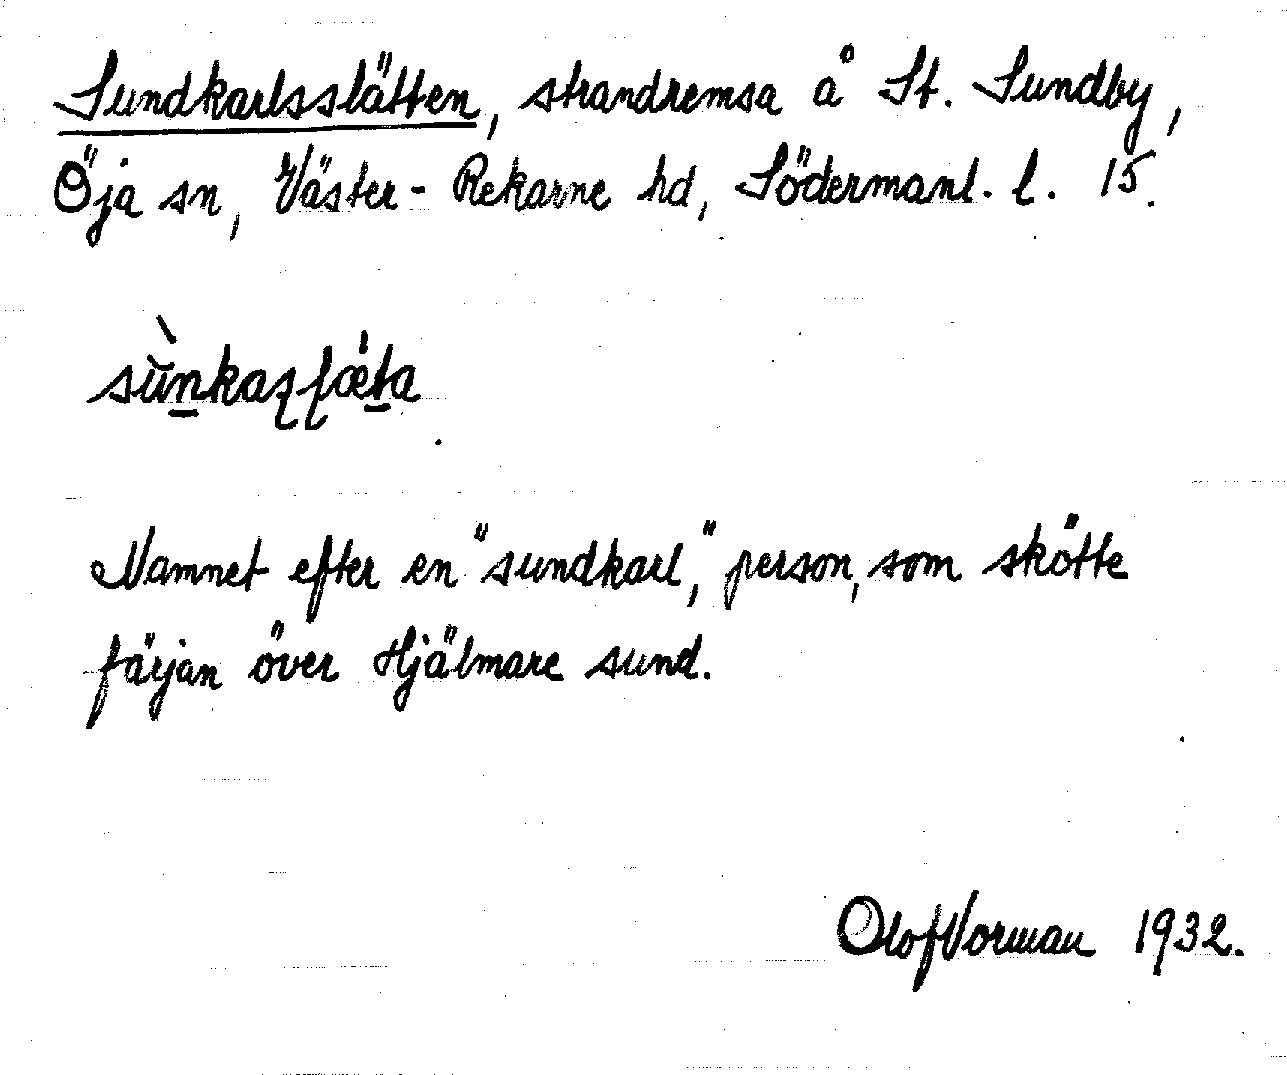 Sundkarlsslätten, strandremsa å St. Sundby,
Öja sn, Väster-Rekarne hd, Södermanl. l. 15.
Namnet efter en "sundkarl," person, som skötte
färjan över Hjälmare sund.
Olof Norman 1932.